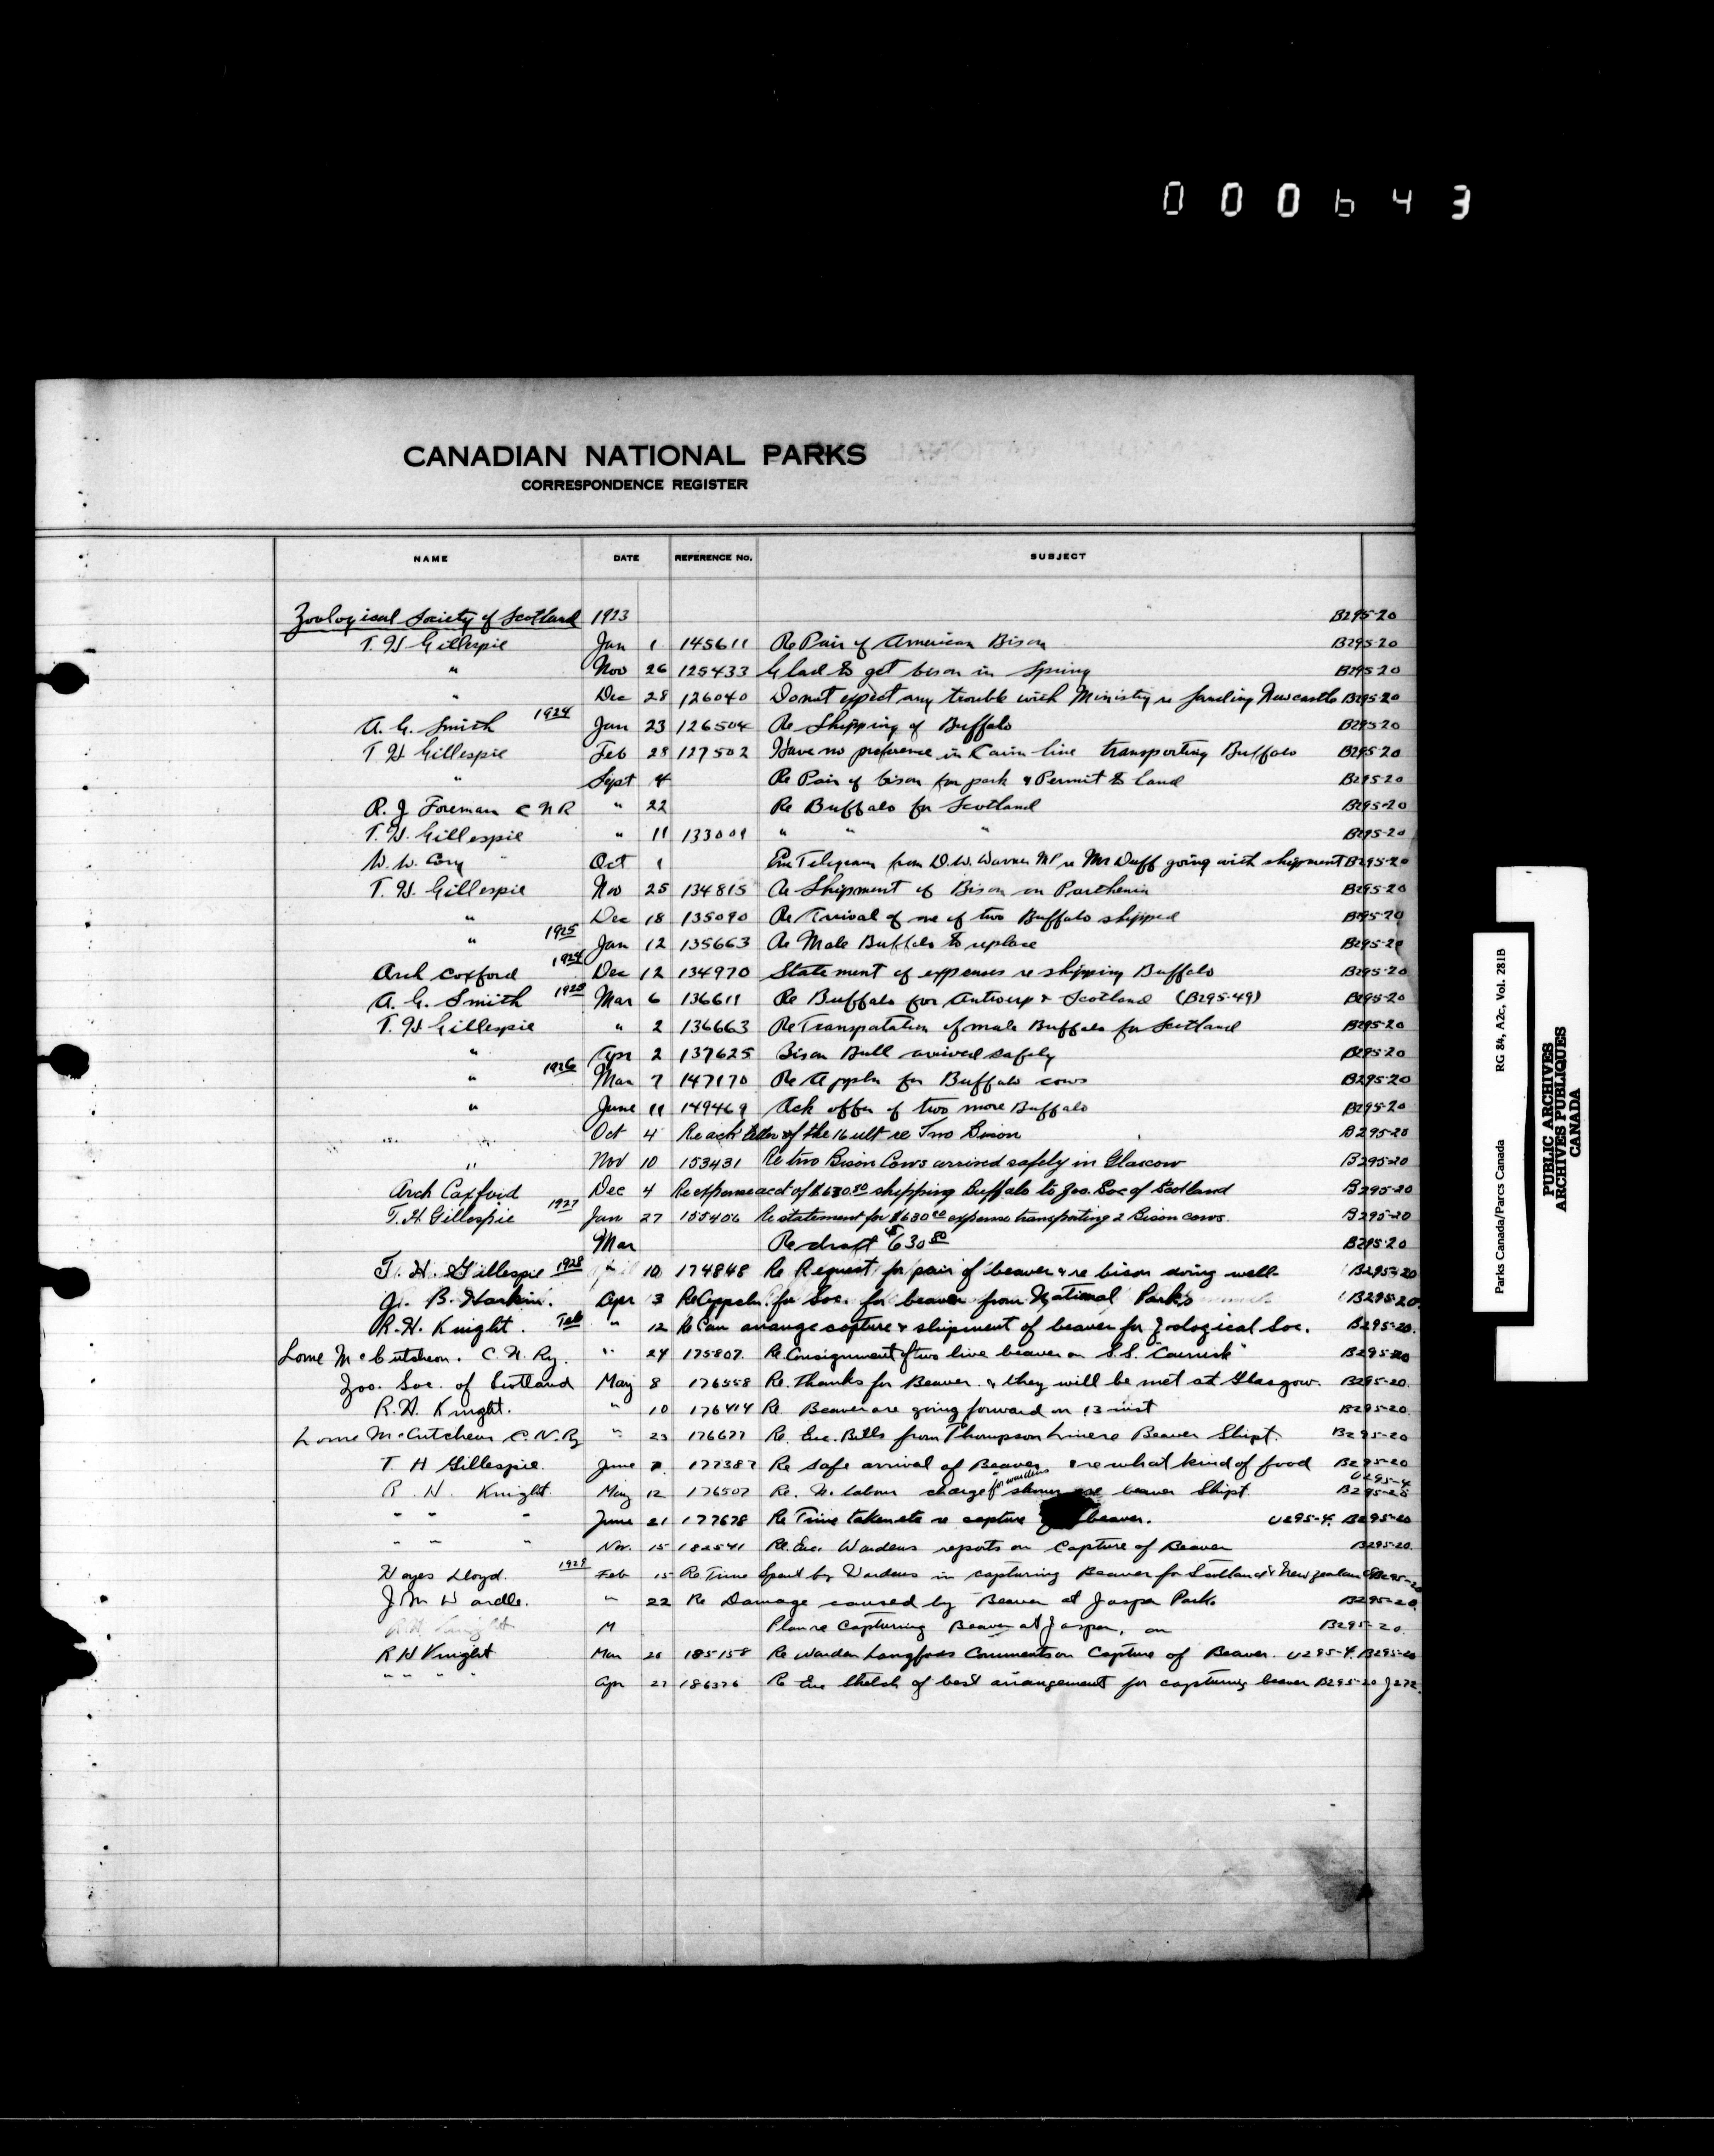 000643
CANADIAN NATIONAL PARKS
CORRESPONDENCE REGISTER
NAME DATE REFERENCE No. SUBJECT
Zoological Society of Scotland 1923 B295-20
T. H Gillespie Jan 1 145611 Re Pair of American Bison B295-20
" Nov 26 125433 Glad to get bison in spring B295-20
" Dec 28 126040 Do not expect any trouble with Ministry re landing Newcastle B295-20
A. G. Smith 1924 Jan 23 126504 Re Shipping of Buffalo B295-20
T H Gillespie Feb 28 127502 Have no preference in Cairn line transporting Buffalo B295-20
" Sept 4 Re Pair of bison for park & Permit to land B295-20
R. J. Foreman C N R " 22 Re Buffalo for Scotland B295-20
T. H. Gillespie " 11 133009 " " " B295-20
W. W. Cory Oct 1 Enc Telegram from D. W. Warner MP re Mr Duff going with shipment B295-20
T. H. Gillespie Nov 25 134815 Re Shipment of Bison on Parthenia B295-20
" Dec 18 135090 Re Arrival of one of two Buffalo shipped B295-20
" 1925 Jan 12 135663 Re Male Buffalo to replace B295-20
Arch Coxford 1924 Dec 12 134970 Statement of expenses re shipping Buffalo B295-20
A. G. Smith 1925 Mar 6 136611 Re Buffalo for Antwerp & Scotland (B295-49) B295-20
T. H Gillespie " 2 136663 Re Transpatation of male Buffalo for Scotland B295-20
" Apr 2 137625 Bison Bull arrived safely B295-20
" 1926 Mar 7 147170 Re Appln for Buffalo cows B295-20
" June 11 149469 Ack offer of two more Buffalo B295-20
" " Oct 4 Re ack letter of the 16 ult re Two Bison B295-20
" Nov 10 153431 Re two Bison Cows arrived safely in Glascow B295-20
Arch Coxford Dec 4 Re expense acct of $630.80 shipping Buffalo to Zoo. Soc of Scotland B295-20
T. H. Gillespie 1927 Jan 27 155406 Re statement for $630 expense transporting 2 Bison cows. B295-20
Mar Re draft $630 80 B295-20
T. H. Gillespie 1928 10 174848 Re Request for pair of beaver & re bison doing well. B295-20
J. B. Harkin. Apr 3 Re Appcln. for Soc. for beaver from National Parks B295-20.
R. H. Knight. Feb " 12 Re Can arrange capture & shipment of beaver for Zoological Soc. B295-20.
Lorne McCutcheon. C. N. Ry. " 24 175807. Re. Consignment of two live beaver on S.S. "Cairnesk" B295-20
Zoo. Soc. of Scotland May 8 176558 Re. thanks for Beaver. & they will be met at Glasgow. B295-20.
R. H. Knight. " 10 176414 Re. Beaver are going forward on 13 inst B295-20.
Lorne McCutcheon C. N. Ry " 23 176677 Re. Enc. Bills from Thompson Line re Beaver Shipt. B295-20
T. H Gillespie. June 7. 177387 Re safe arrival of Beaver & re what kind of food B295-20
R. H. Knight. May 12 176507 Re. labour charge for wardens beaver Shipt. U295-4 B295-20
" " " June 21 177678 Re Time taken etc re capture beaver. U295-4. B295-20
" " " Nov. 15 182541 Re. Enc. Wardens reports on Capture of Beaver B295-20.
Hoyes Lloyd. 1929 Feb 15 Re Time Spent by Wardens in capturing Beaver for Scotland & New Zealand B295-20
J M Wardle. " 22 Re Damage caused by Beaver at Jasper Park. B295-20.
R.H. Knight M Plan re Capturing Beaver at Jasper, on B295-20.
R H Knight Mar 185158 Re Warden Langfords Comments on Capture of Beaver. U295-4. B295-20
" " " " Apr 27 186376 Re Enc Sketch of best arrangement for capturing beaver B295-20 J272.
Parks Canada/Parcs Canada RG 84, A2c, Vol. 281B
PUBLIC ARCHIVES
ARCHIVES PUBLIQUES
CANADA